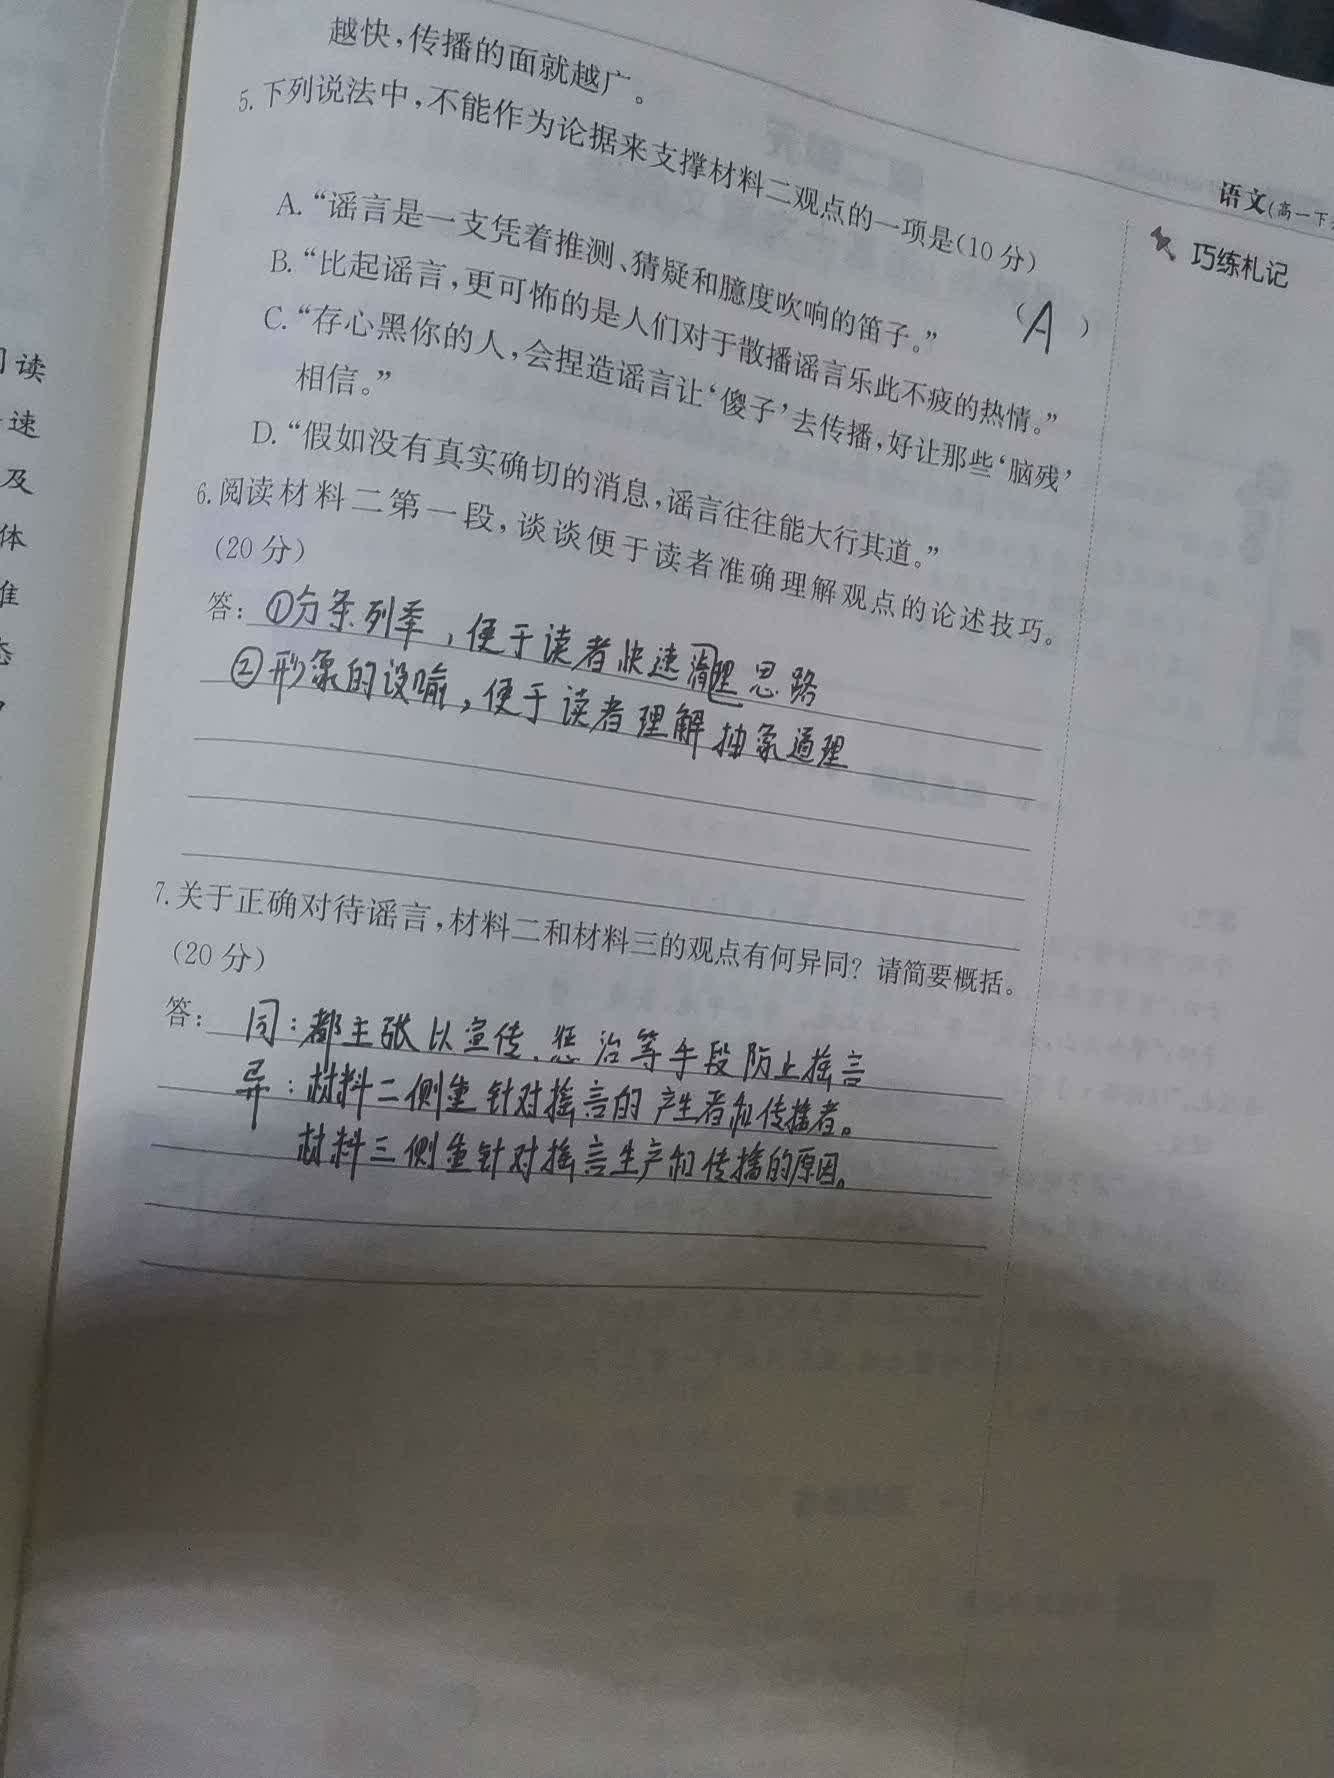 越快，传播的面就越广。
5.下列说法中，不能作为论据来支撑材料二观点的一项是(10分)
（A）
A.“谣言是一支凭着推测、猜疑和臆度吹响的笛子。”
B.“比起谣言，更可怖的是人们对于散播谣言乐此不疲的热情。”
C.“存心黑你的人，会捏造谣言让‘傻子’去传播，好让那些‘脑残’
相信。”
D.“假如没有真实确切的消息，谣言往往能大行其道。”
6.阅读材料二第一段，谈谈便于读者准确理解观点的论述技巧。
(20分)
答：①分条列举，便于读者快速清理思路
②形象的设喻，便于读者理解抽象道理
7.关于正确对待谣言，材料二和材料三的观点有何异同？请简要概括。
(20分)
答：同：都主张以宣传、惩治等手段防止摇言
异：材料二侧重针对摇言的产生者和传播者。
材料三侧重针对摇言生产和传播的原因。
语文(高一下
巧练札记
读
速
及
体
准
态